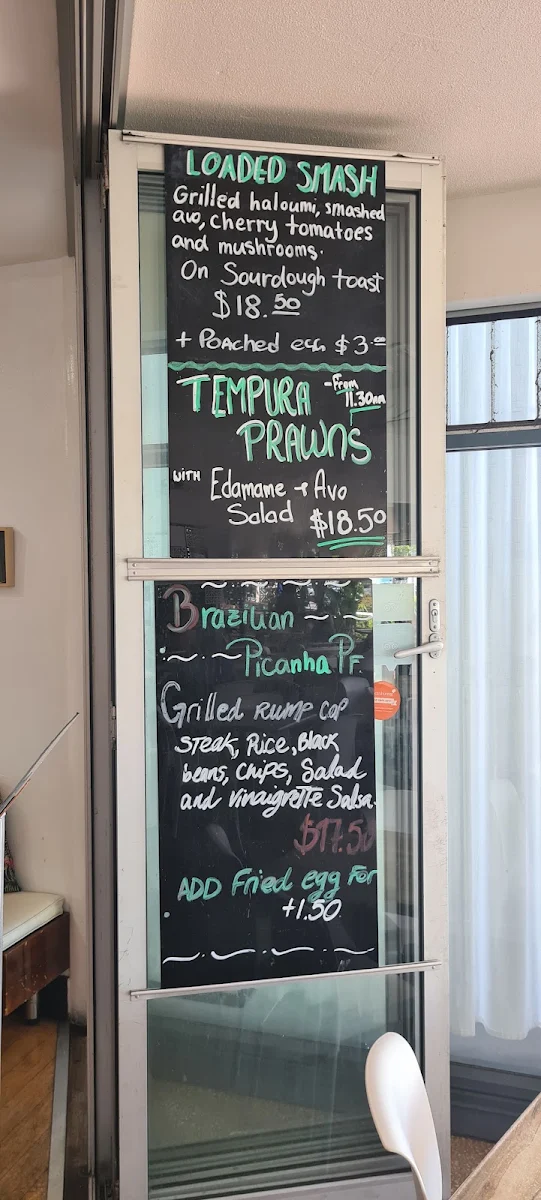 LOADED SMASH
Grilled haloumi, smashed
avo, cherry tomatoes
and mushrooms.
On Sourdough toast
$18.50
+ Poached egg $3.00
TEMPURA - From
11.30am
PRAWNS
WITH Edamame + Avo
Salad $18.50
Brazilian
Picanha PF
Grilled Rump cap
Steak, Rice, Black
beans, chips, Salad
and vinaigrette Salsa.
$17.50
ADD Fried egg For
+1.50